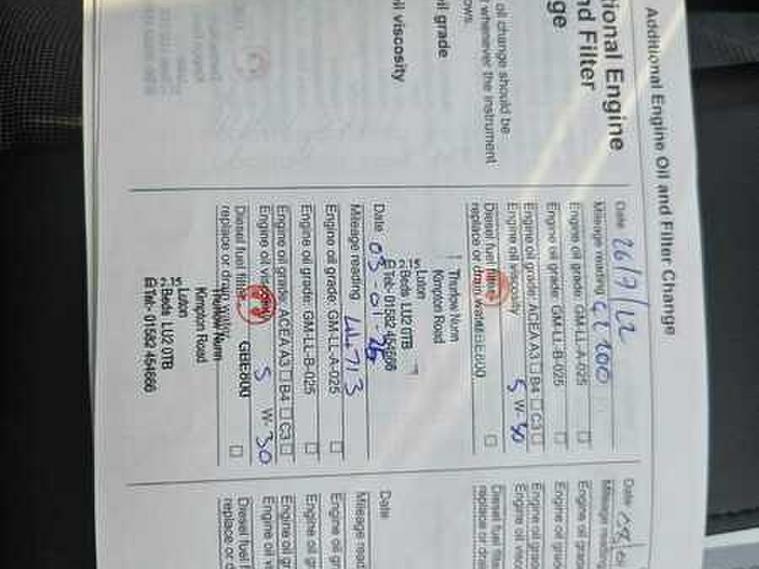 Additional Engine Oil and Filter Change
tional Engine
nd Filter
ge
oil change should be
whenever the instrument
ows.
il grade
il viscosity
Date 26/7/22
Mileage reading
Engine oil grade: GM-LL-A-025 ☐
Engine oil grade: GM-LL-B-025 ☐
Engine oil grade: ACEA A3 ☐ B4 ☐ C3 ☐
Engine oil viscosity 5 W-30
Diesel fuel filter,
replace or drain water GBE800 ☐
Thurlow Nunn
Kimpton Road
Luton
Beds LU2 0TB
Tel:- 01582 454666
Date 03-01-
Mileage reading
Engine oil grade: GM-LL-A-025 ☐
Engine oil grade: GM-LL-B-025 ☐
Engine oil grade: ACEA A3 ☐ B4 ☐ C3 ☐
Engine oil viscosity 5 W-30
Diesel fuel filter,
replace or drain water GBE800 ☐
Thurlow Nunn
Kimpton Road
Luton
Beds LU2 0TB
Tel:- 01582 454666
Date
Mileage reading
Engine oil grade
Engine oil grade
Engine oil grade
Engine oil visco
Diesel fuel filte
replace or drai
Date
Mileage read
Engine oil gr
Engine oil gr
Engine oil gr
Engine oil vi
Diesel fuel f
replace or d